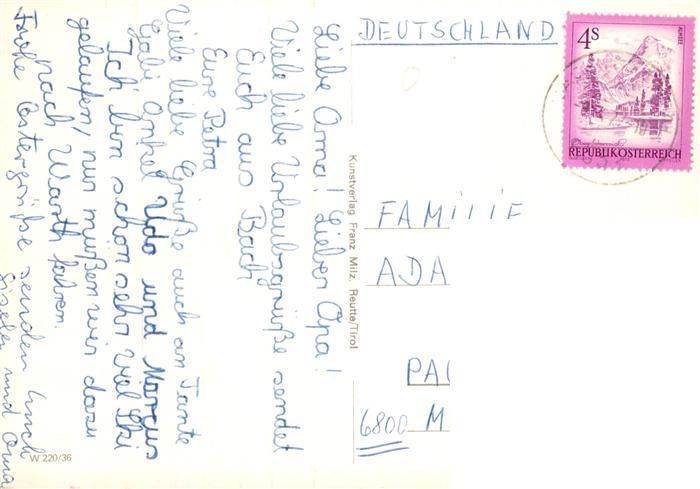 Liebe Oma! Lieber Opa!
Viele liebe Urlaubsgrüße sendet
Euch aus Bach
Eure Petra
Viele liebe Grüße auch an Tante
Gabi Onkel Udo und Marcus
Ich bin schon sehr viel Ski
gelaufen, nur mußen wir dazu
nach Warth fahren.
Frohe Ostergrüße senden Euch
Gisela und Oma
W 220/36
Kunstverlag Franz Milz, Reutte/Tirol
DEUTSCHLAND
4S
ALMSEE
REPUBLIK ÖSTERREICH
FAMILIE
ADA
PA
6800 M